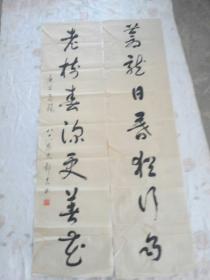 蒼龍日暮猶行雨
老樹春深更著花